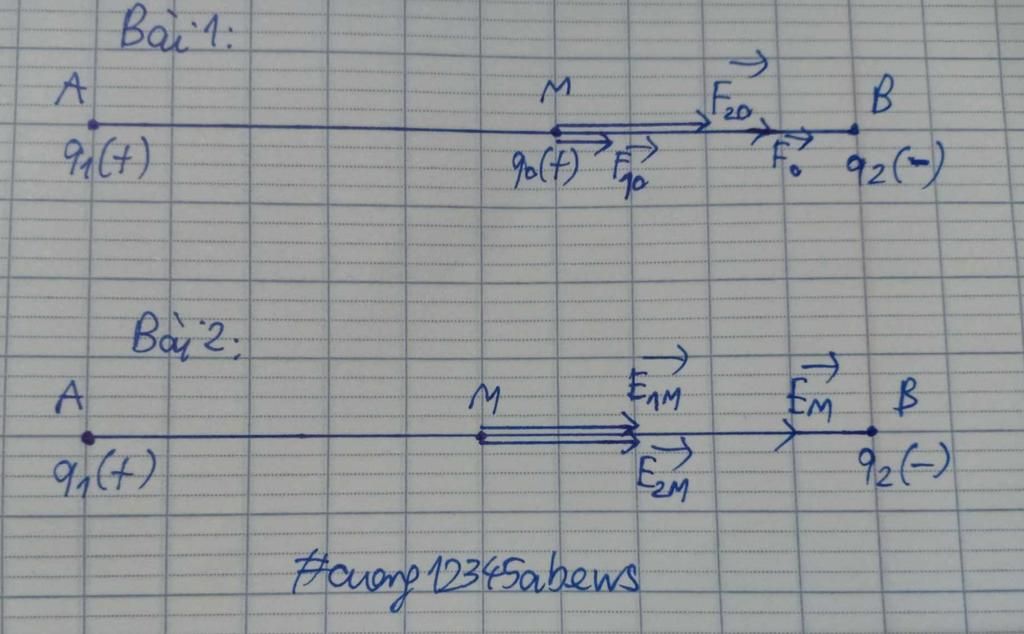 Bài 1:
A M F₂₀ B
q₁(+) q₀(+) F₁₀ F₀ q₂(-)
Bài 2:
A M E₁M E_M B
q₁(+) E₂M q₂(-)
#cuong12345abews